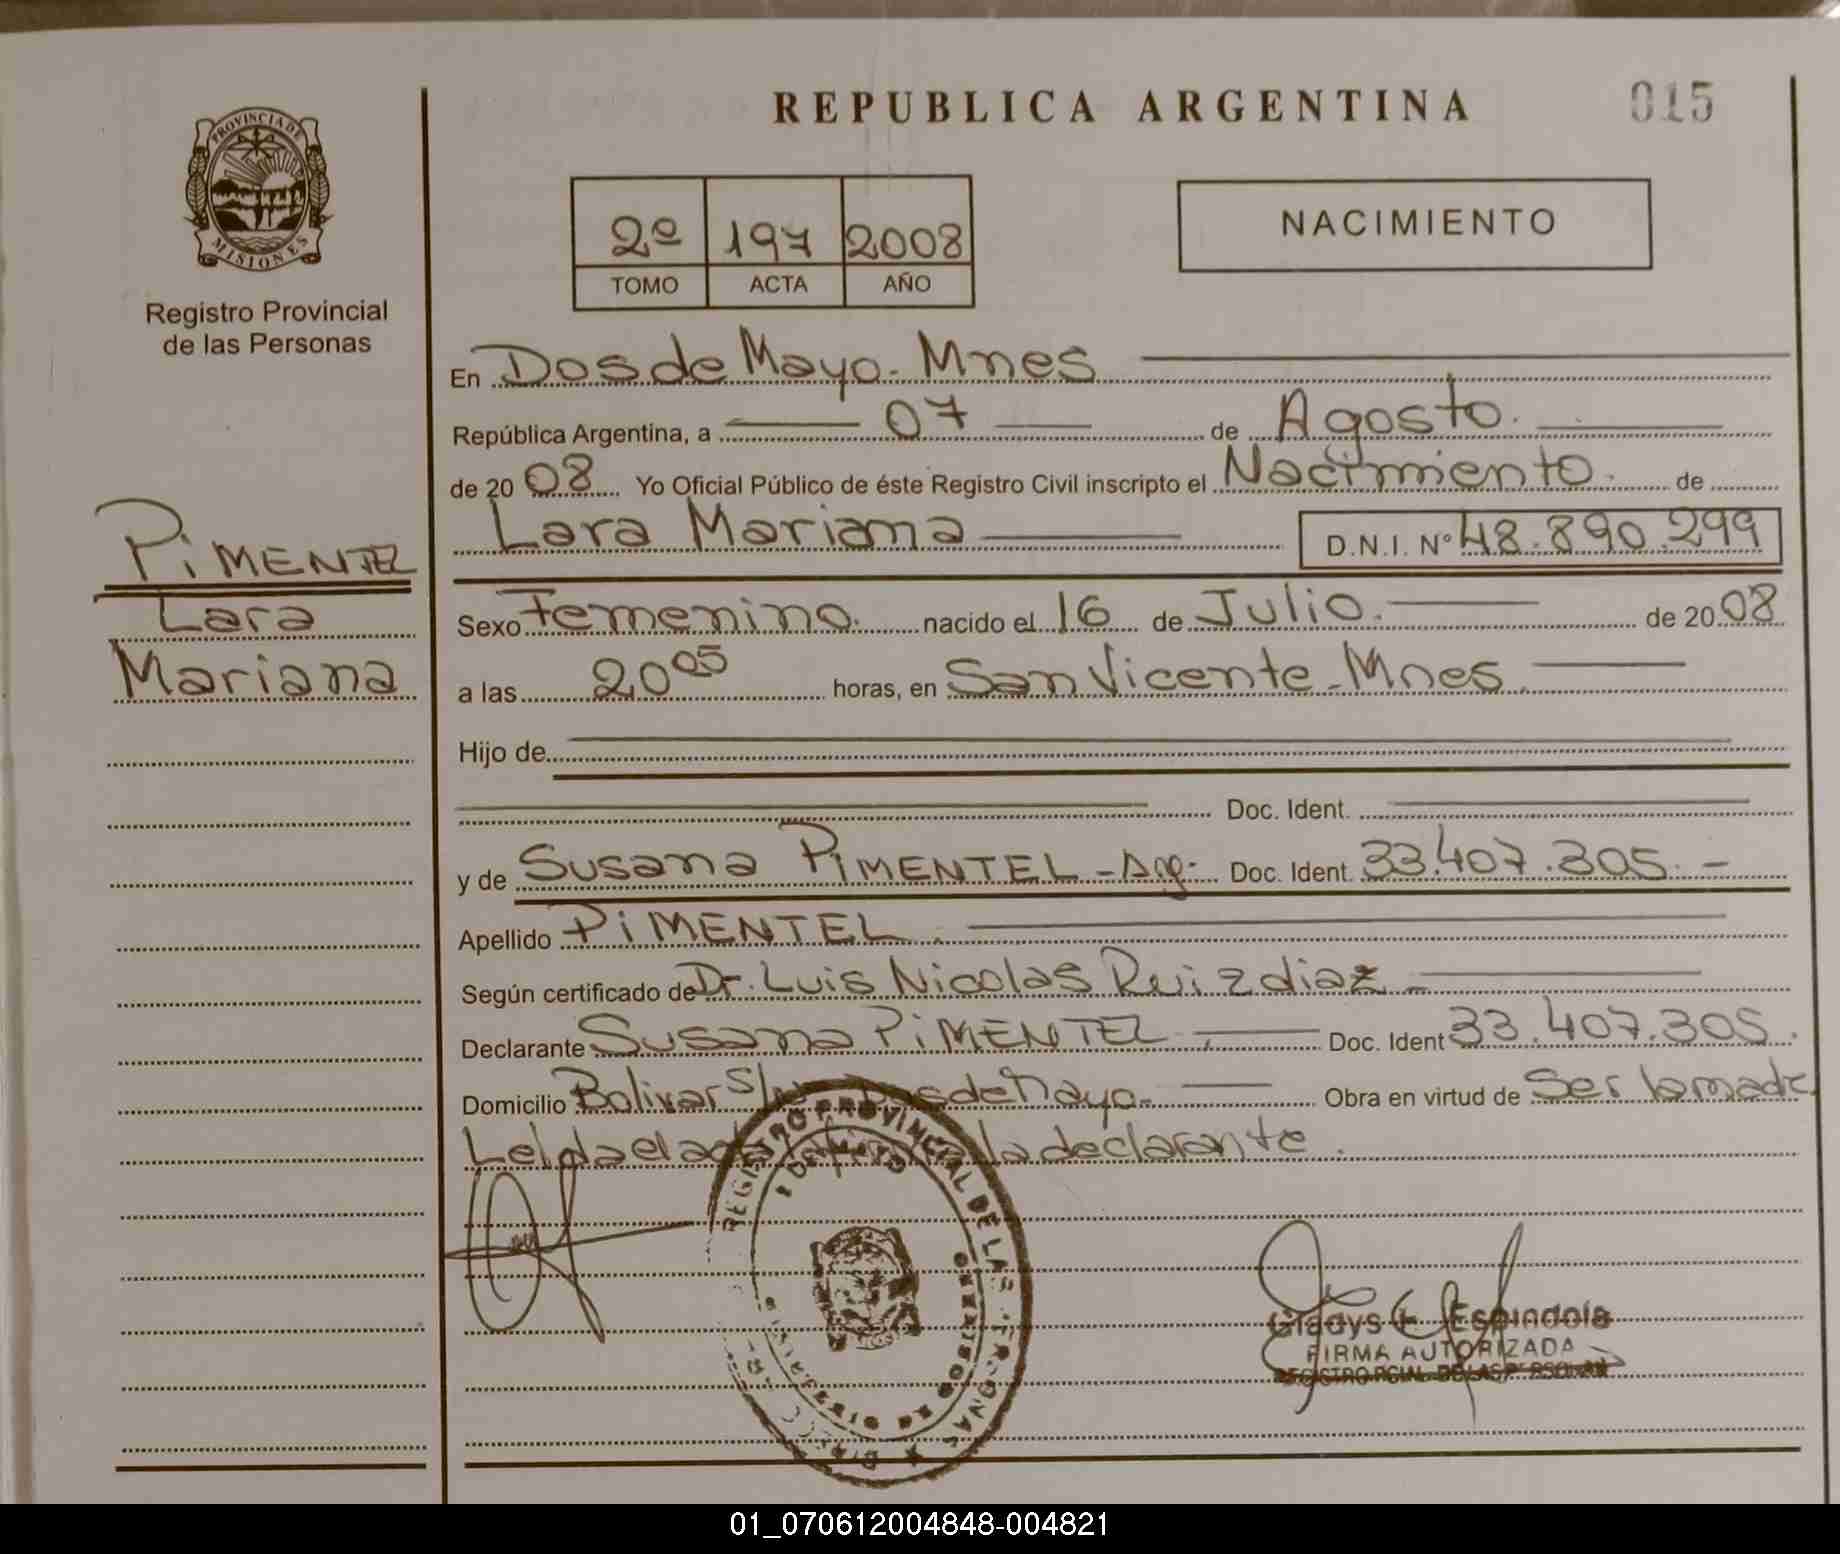 REPUBLICA ARGENTINA
015
PROVINCIA DE
MISIONES
Registro Provincial
de las Personas
2º 197 2008
TOMO ACTA AÑO
NACIMIENTO
En Dos de Mayo. Mnes
República Argentina, a 07 de Agosto.
de 2008 Yo Oficial Público de éste Registro Civil inscripto el Nacimiento. de
Lara Mariana D.N.I. Nº 48.890.299
PiMENTEL
Lara
Mariana
Sexo Femenino. nacido el 16 de Julio. de 2008
a las 20 05 horas, en San Vicente - Mnes.
Hijo de
Doc. Ident.
y de Susana PiMENTEL - Arg. Doc. Ident. 33.407.305. -
Apellido PiMENTEL.
Según certificado de Dr. Luis Nicolas Ruiz diaz -
Declarante Susana PiMENTEL Doc. Ident 33.407.305.
Domicilio Bolivar S/ Dos de Mayo. Obra en virtud de Ser la madre
Leida el acta la declarante.
REGISTRO PROVINCIAL DE LAS PERSONAS
Gladys E. Espindola
FIRMA AUTORIZADA
REGISTRO PCIAL. DE LAS PERSONAS
01_070612004848-004821